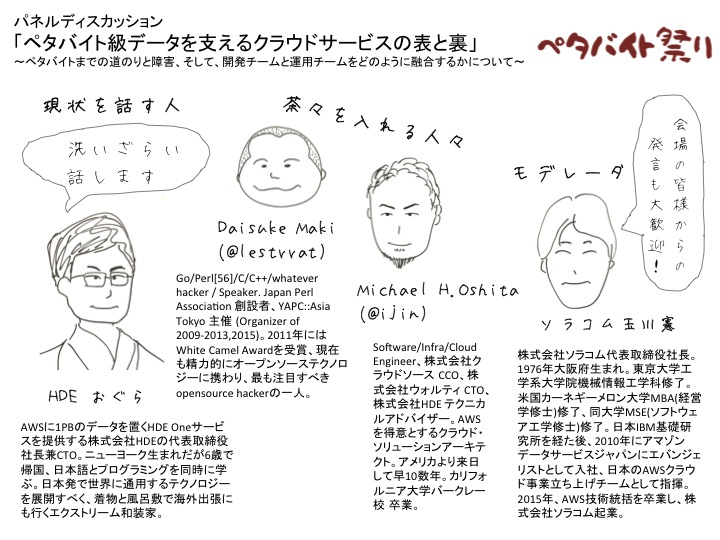 パネルディスカッション
「ペタバイト級データを支えるクラウドサービスの表と裏」
～ペタバイトまでの道のりと障害、そして、開発チームと運用チームをどのように融合するかについて～
ペタバイト祭り
現状を話す人
洗いざらい
話します
HDE おぐら
AWSに1PBのデータを置くHDE Oneサービ
スを提供する株式会社HDEの代表取締役
社長兼CTO。ニューヨーク生まれだが6歳で
帰国、日本語とプログラミングを同時に学
ぶ。日本発で世界に通用するテクノロジー
を展開すべく、着物と風呂敷で海外出張に
も行くエクストリーム和装家。
茶々を入れる人々
Daisuke Maki
(@lestrrat)
Go/Perl[56]/C/C++/whatever
hacker / Speaker. Japan Perl
Association 創設者、YAPC::Asia
Tokyo 主催 (Organizer of
2009-2013,2015)。2011年には
White Camel Awardを受賞、現在
も精力的にオープンソーステクノロ
ジーに携わり、最も注目すべき
opensource hackerの一人。
Michael H. Oshita
(@ijin)
Software/Infra/Cloud
Engineer、株式会社ク
ラウドソース CCO、株
式会社ウォルティ CTO、
株式会社HDE テクニカ
ルアドバイザー。AWS
を得意とするクラウド・
ソリューションアーキテ
クト。アメリカより来日
して早10数年。カリフォ
ルニア大学バークレー
校 卒業。
モデレータ
会場の皆様からの
発言も大歓迎！
ソラコム玉川憲
株式会社ソラコム代表取締役社長。
1976年大阪府生まれ。東京大学工
学系大学院機械情報工学科修了。
米国カーネギーメロン大学MBA(経営
学修士)修了、同大学MSE(ソフトウェ
ア工学修士)修了。日本IBM基礎研
究所を経た後、2010年にアマゾン
データサービスジャパンにエバンジェ
リストとして入社、日本のAWSクラウ
ド事業立ち上げチームとして指揮。
2015年、AWS技術統括を卒業し、株
式会社ソラコム起業。